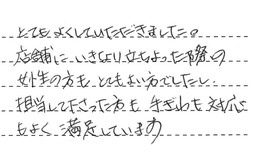 とてもよくしていただきました。
店舗にいきなり立ちよった際の
女性の方もとてもよい方でしたし、
担当して下さった方も手ぎわも対応
もよく満足しています